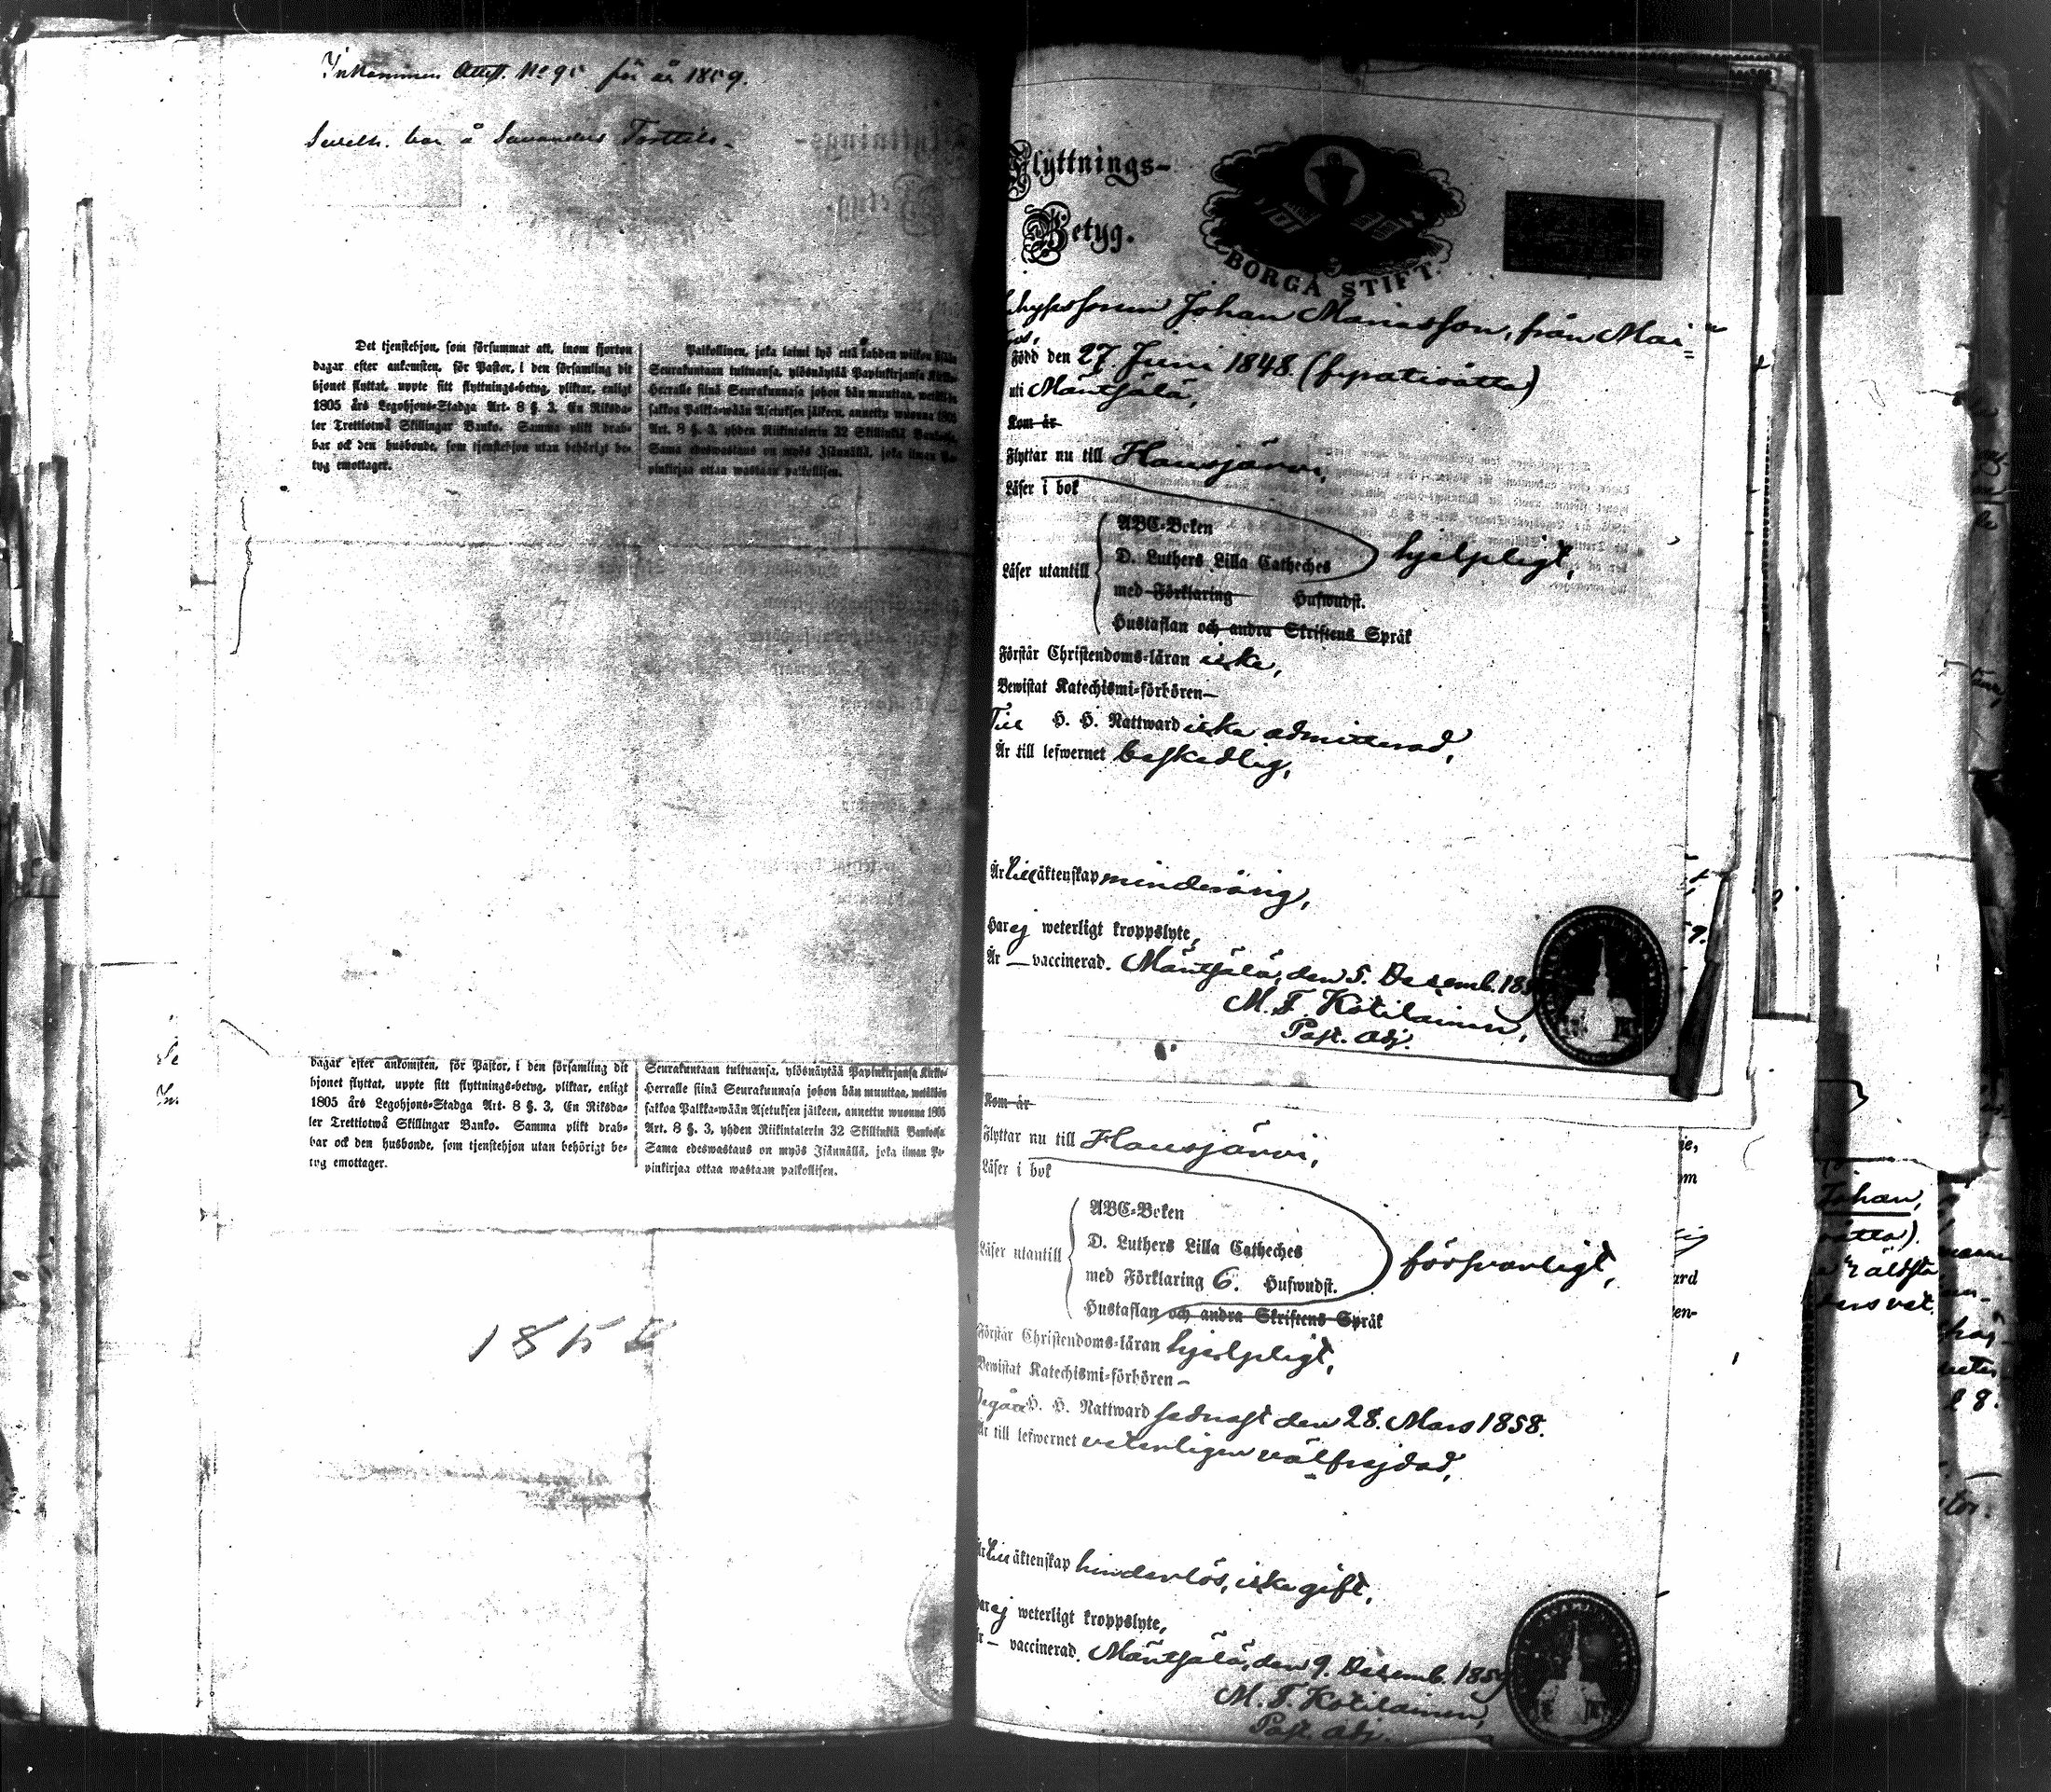 Inkommen Attest. No 95 för år 1859.
å Savanders Torttila
Det tjenstehjon, som försummar att, inom fjorton
dagar efter ankomsten, för Pastor, i den församling dit
hjonet flyttat, uppte sitt flyttnings-betyg, pliktar, enligt
1805 års Legohjons-Stadga Art. 8 §. 3, En Riksda-
ler Trettiotwå Skillingar Banko. Samma plikt drab-
bar ock den husbonde, som tjenstehjon utan behörigt be-
tyg emottager.
Palkollinen, joka laimi lyö että kahden wiikon sisään
Seurakuntaan tultuansa, ylösnäytää Papinkirjansa Kirkko-
Herralle siinä Seurakunnasa johon hän muuttaa, wetäkään
sakkoa Palkka-wään Asetuksen jälkeen, annettu wuonna 1805
Art. 8 §. 3, yhden Riikintalerin 32 Skillinkiä Bankossa
Sama edeswastaus on myös Isännällä, joka ilman Pa-
pinkirjaa ottaa wastaan palkollisen.
dagar efter ankomsten, för Pastor, i den församling dit
hjonet flyttat, uppte sitt flyttnings-betyg, pliktar, enligt
1805 års Legohjons-Stadga Art. 8 §. 3, En Riksda-
ler Trettiotwå Skillingar Banko. Samma plikt drab-
bar ock den husbonde, som tjenstehjon utan behörigt be-
tyg emottager.
Seurakuntaan tultuansa, ylösnäytää Papinkirjansa Kirkko-
Herralle siinä Seurakunnasa johon hän muuttaa, wetäkään
sakkoa Palkka-wään Asetuksen jälkeen, annettu wuonna 1805
Art. 8 §. 3, yhden Riikintalerin 32 Skillinkiä Bankossa
Sama edeswastaus on myös Isännällä, joka ilman Pa-
pinkirjaa ottaa wastaan palkollisen.
1858
Flyttnings-
Betyg.
BORGÅ STIFT.
Johan Mariasson, från Mai=
Född den 27 Juni 1848 (fyratioåtta)
uti Mäntsälä,
Kom år
Flyttar nu till Hausjärvi,
Läser i bok
ABC-Boken
D. Luthers Lilla Catheches hjelpligt,
Läser utantill
med Förklaring Huswudst.
Hustaflan och andra Skriftens Språk
Förstår Christendoms-läran icke,
Bewistat Katechismi-förhören —
Till H. H. Nattward icke admitterad,
Är till lefwernet beskedlig,
Är till äktenskap minderårig,
Har ej weterligt kroppslyte,
Är — vaccinerad. Mäntsälä, den 5. Decemb. 185
M. F. Kotilainen,
Past. Adj.
Kom år
Flyttar nu till Hausjärvi,
Läser i bok
ABC-Boken
D. Luthers Lilla Catheches
Läser utantill försvarligt,
med Förklaring 6. Huswudst.
Hustaflan och andra Skriftens Språk
Förstår Christendoms-läran hjelpligt,
Bewistat Katechismi-förhören —
Begått H. H. Nattward sednast den 28. Mars 1858.
Är till lefwernet veterligen välfrejdad,
Är till äktenskap hinderlös, icke gift,
Har ej weterligt kroppslyte,
Är — vaccinerad. Mäntsälä, den 9. Decemb. 1859
M. F. Kotilainen,
Past. Adj.
Johan,
äldsta